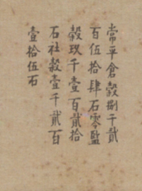 常平倉穀捌千貳
百伍拾肆石零監
穀玖千壹百貳拾
石社穀壹千貳百
壹拾伍石